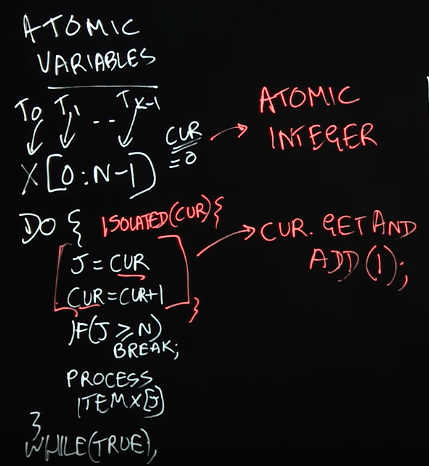 ATOMIC
VARIABLES
T0 T1 .. TK-1
CUR
=0
X[0:N-1]
ATOMIC
INTEGER
DO { ISOLATED(CUR){
J = CUR
CUR=CUR+1
}
CUR. GET AND
ADD(1);
IF(J ≥ N)
BREAK;
PROCESS
ITEM X[J]
}
WHILE(TRUE);